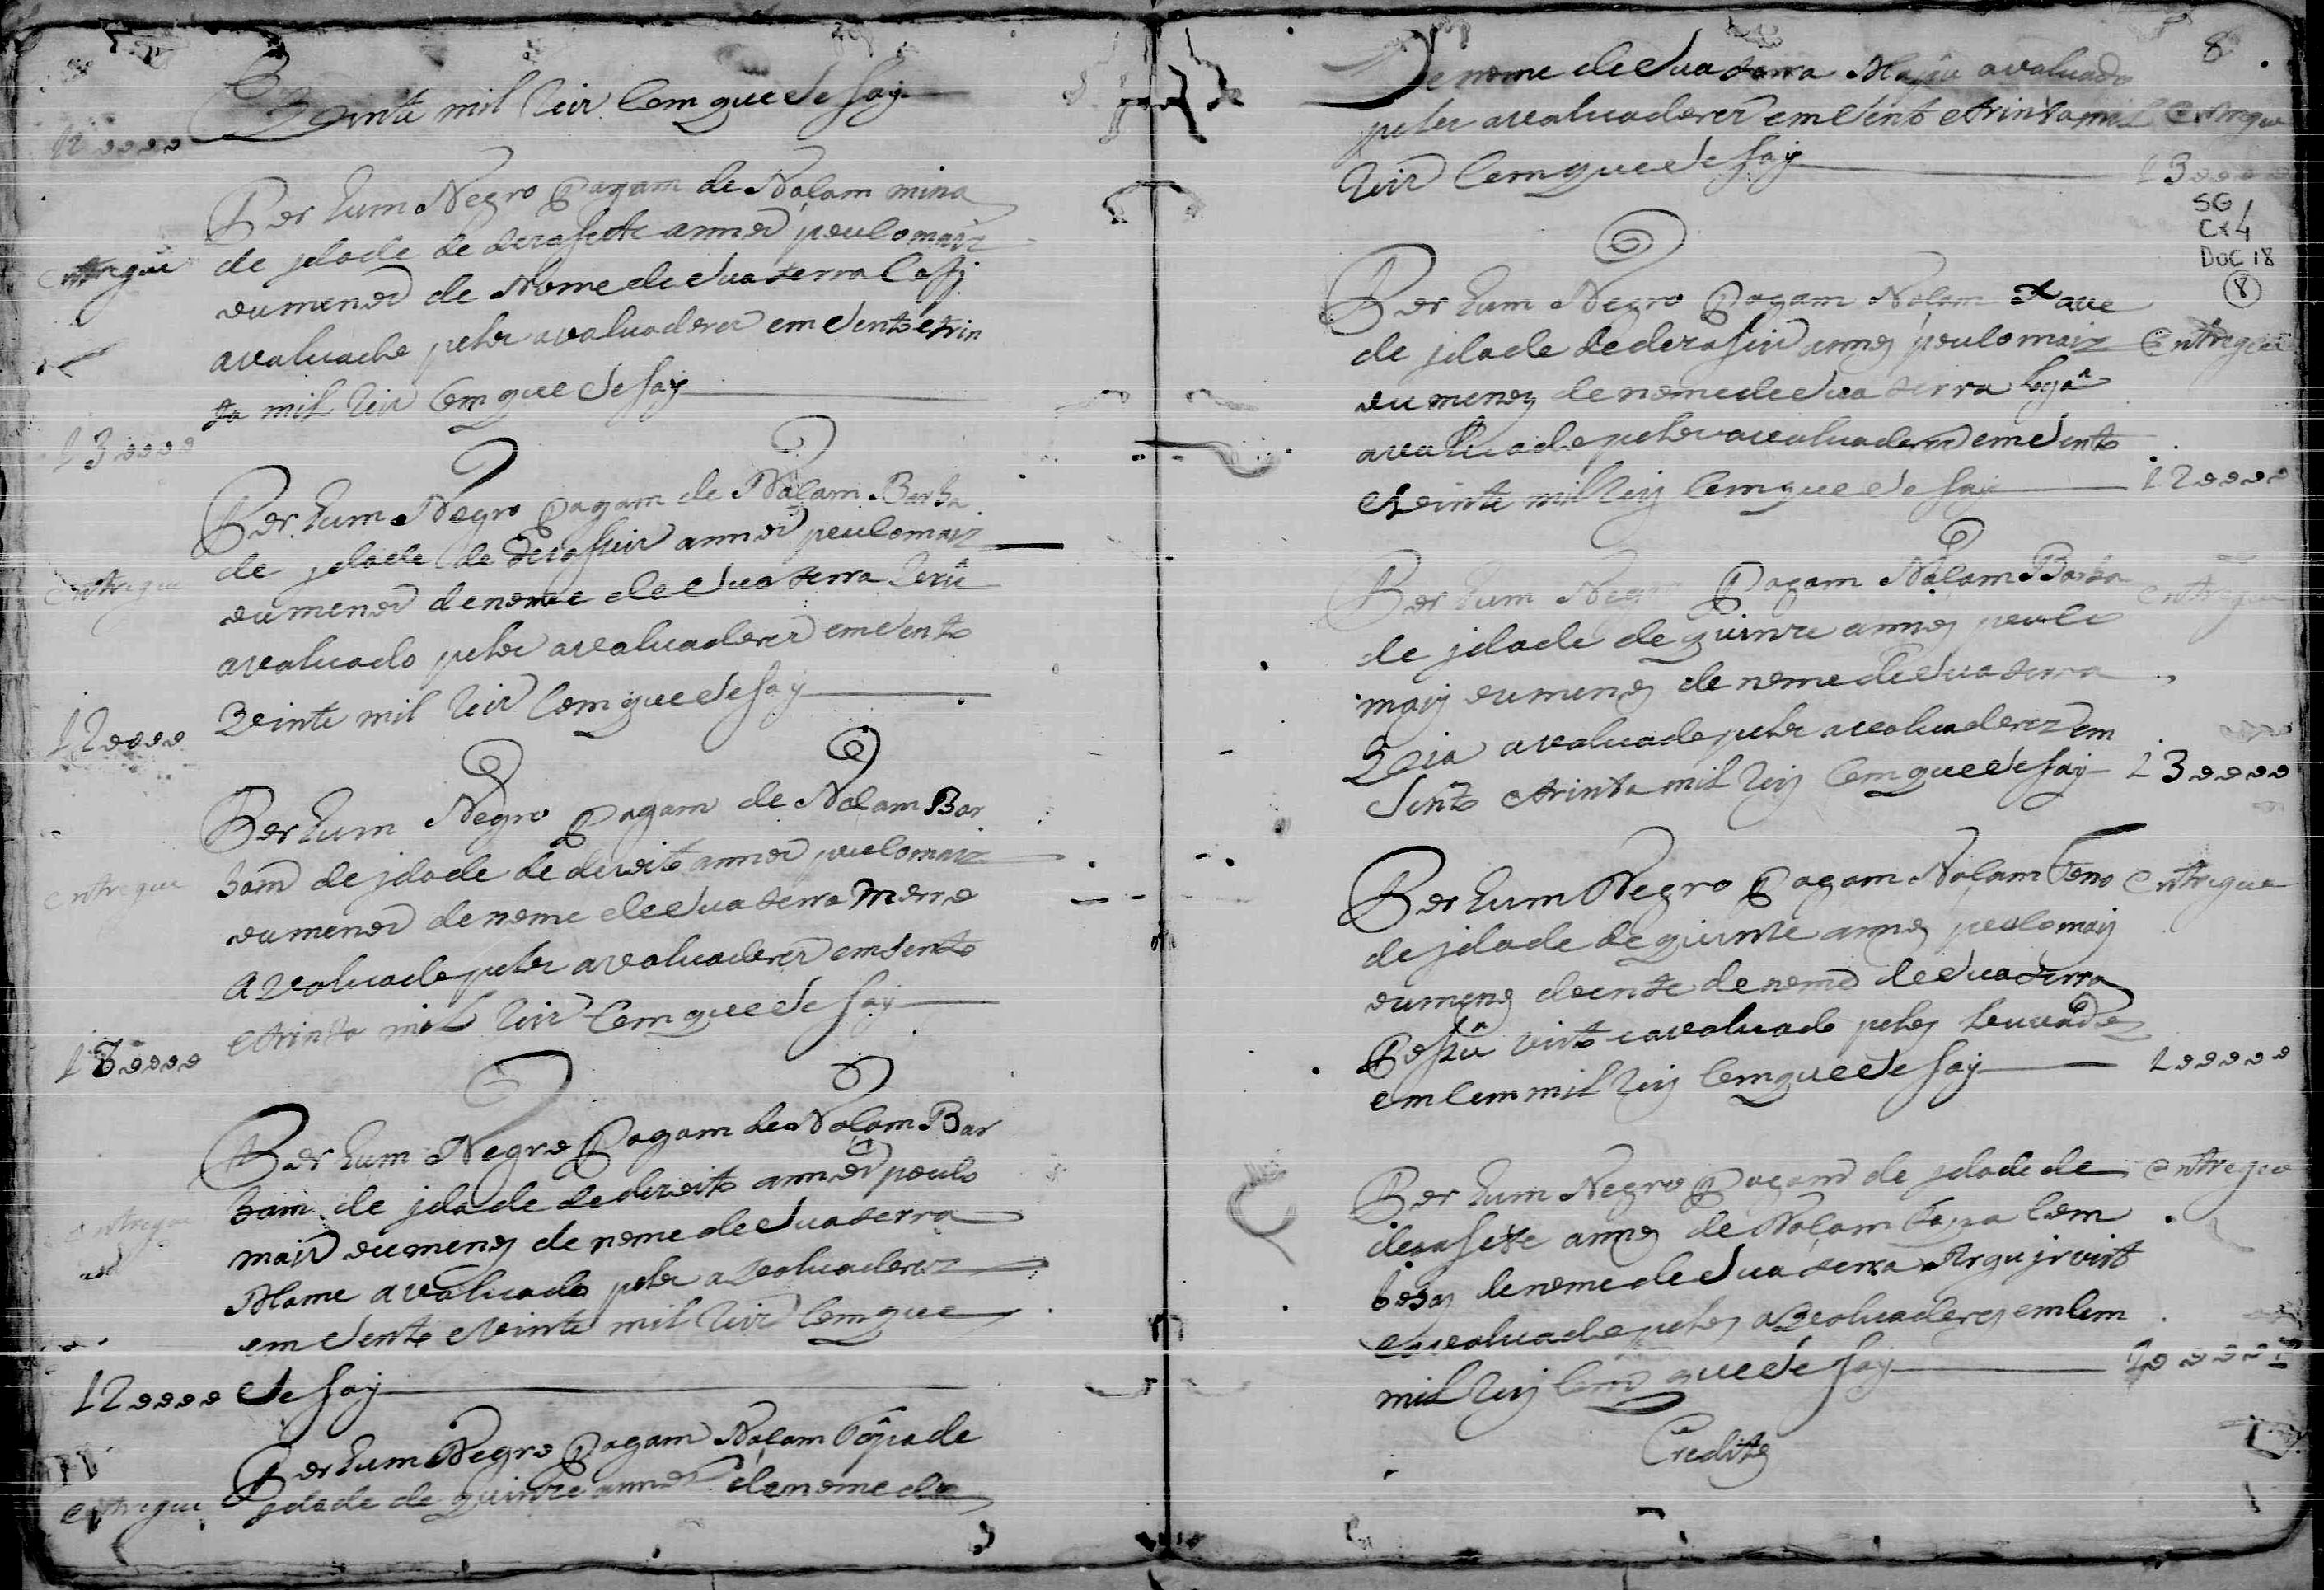 Veinte mil Reis com que se say
120000
Por hum Negro Pagam de Nasam mina
de jdade de dezasete annos pouco mais
entregue
ou menos de Nome de sua terra Cosj
avaluado pellos avaluadores em sento e trin
ta mil Reis Com que se say
130000
Por hum Negro Pagam de Nasam Barba
de jdade de dezaseis annos pouco mais
entregue
ou menos de nome de sua terra
avaluado pellos avaluadores em sento
Veinte mil Reis Com que se say
120000
Por hum Negro Pagam de Nasam Bar
entregue
bam de jdade de dezoito annos pouco mais
ou menos de nome de sua terra
avaluado pellos avaluadores em sento
e trinta mil Reis Com que se say
130000
Por hum Negro Pagam de Nasam Bar
bam de jdade de dezoito annos pouco
entregue
mais ou menos de nome de sua terra
Mame avaluado pellos avaluadores
em sento e Veinte mil Reis Com que
120000 se say
Por hum Negro Pagam Nasam de
entregue
jdade de quinze annos de nome de
8
De nome de sua terra avaluado
pellos avaluadores em sento e trinta mil entregue
Reis Com que se say 130000
SG
Cx 4
Doc 18
8
Por hum Negro Pagam Nasam
de jdade de dezaseis annos pouco mais entregue
ou menos de nome de sua terra
avaluado pellos avaluadores em sento
e Veinte mil Reis Com que se say 120000
Por hum Negro Pagam Nasam Barba entregue
de jdade de quinze annos pouco
mais ou menos de nome de sua terra
avaluado pellos avaluadores em
sento e trinta mil Reis Com que se say 130000
Por hum Negro Pagam Nasam entregue
de jdade de quinze annos pouco mais
ou menos doente de nome de sua terra
visto e avaluado pellos Louvados
em Cem mil Reis Com que se say 100000
Por hum Negro Pagam de jdade de entregue
dezasete annos de Nasam Com
de nome de sua terra visto
e avaluado pellos avaluadores em Cem
mil Reis Com que se say 100000
Creditos